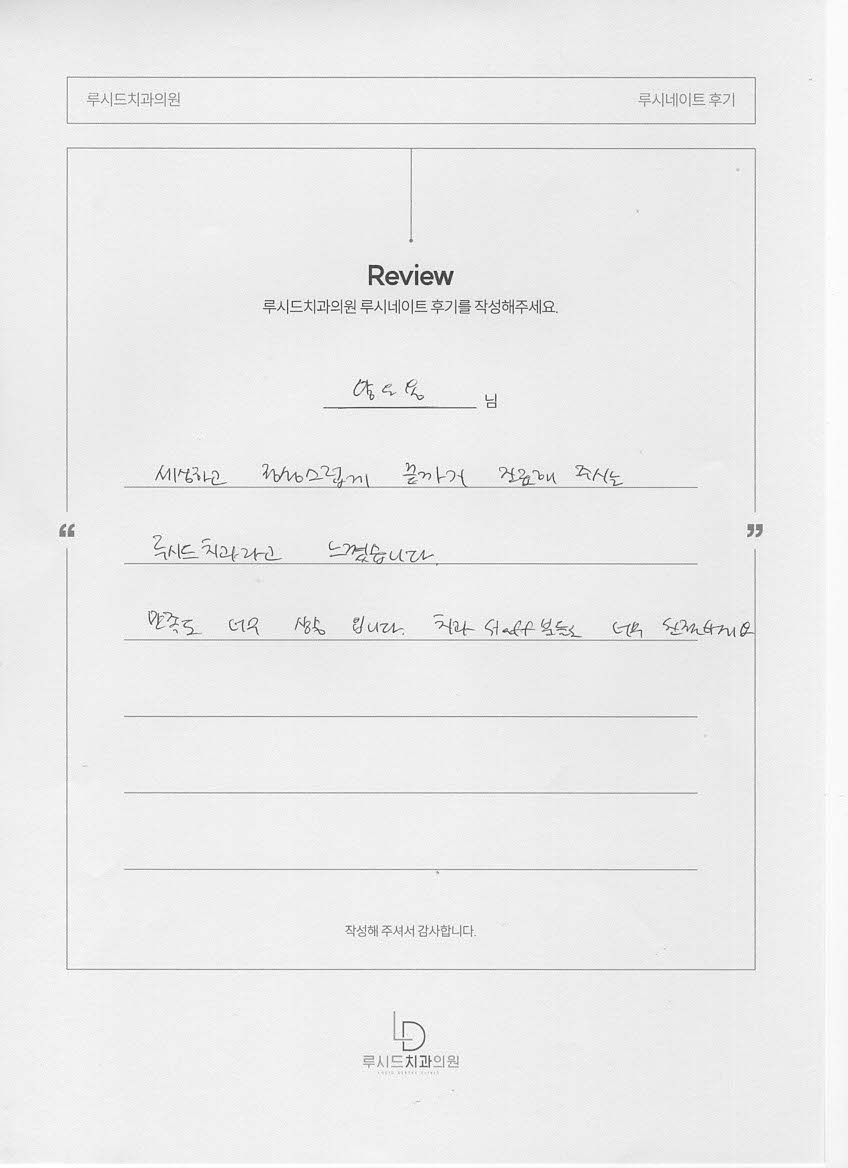 루시드치과의원 루시네이트 후기
Review
루시드치과의원 루시네이트 후기를 작성해주세요.
님
세심하고 정성스럽게 끝까지 진료해 주시는
루시드치과라고 느꼈습니다.
만족도 너무 상승 입니다. 치과 staff분들도 너무 친절하시고
작성해 주셔서 감사합니다.
LD
루시드치과의원
LUCID DENTAL CLINIC